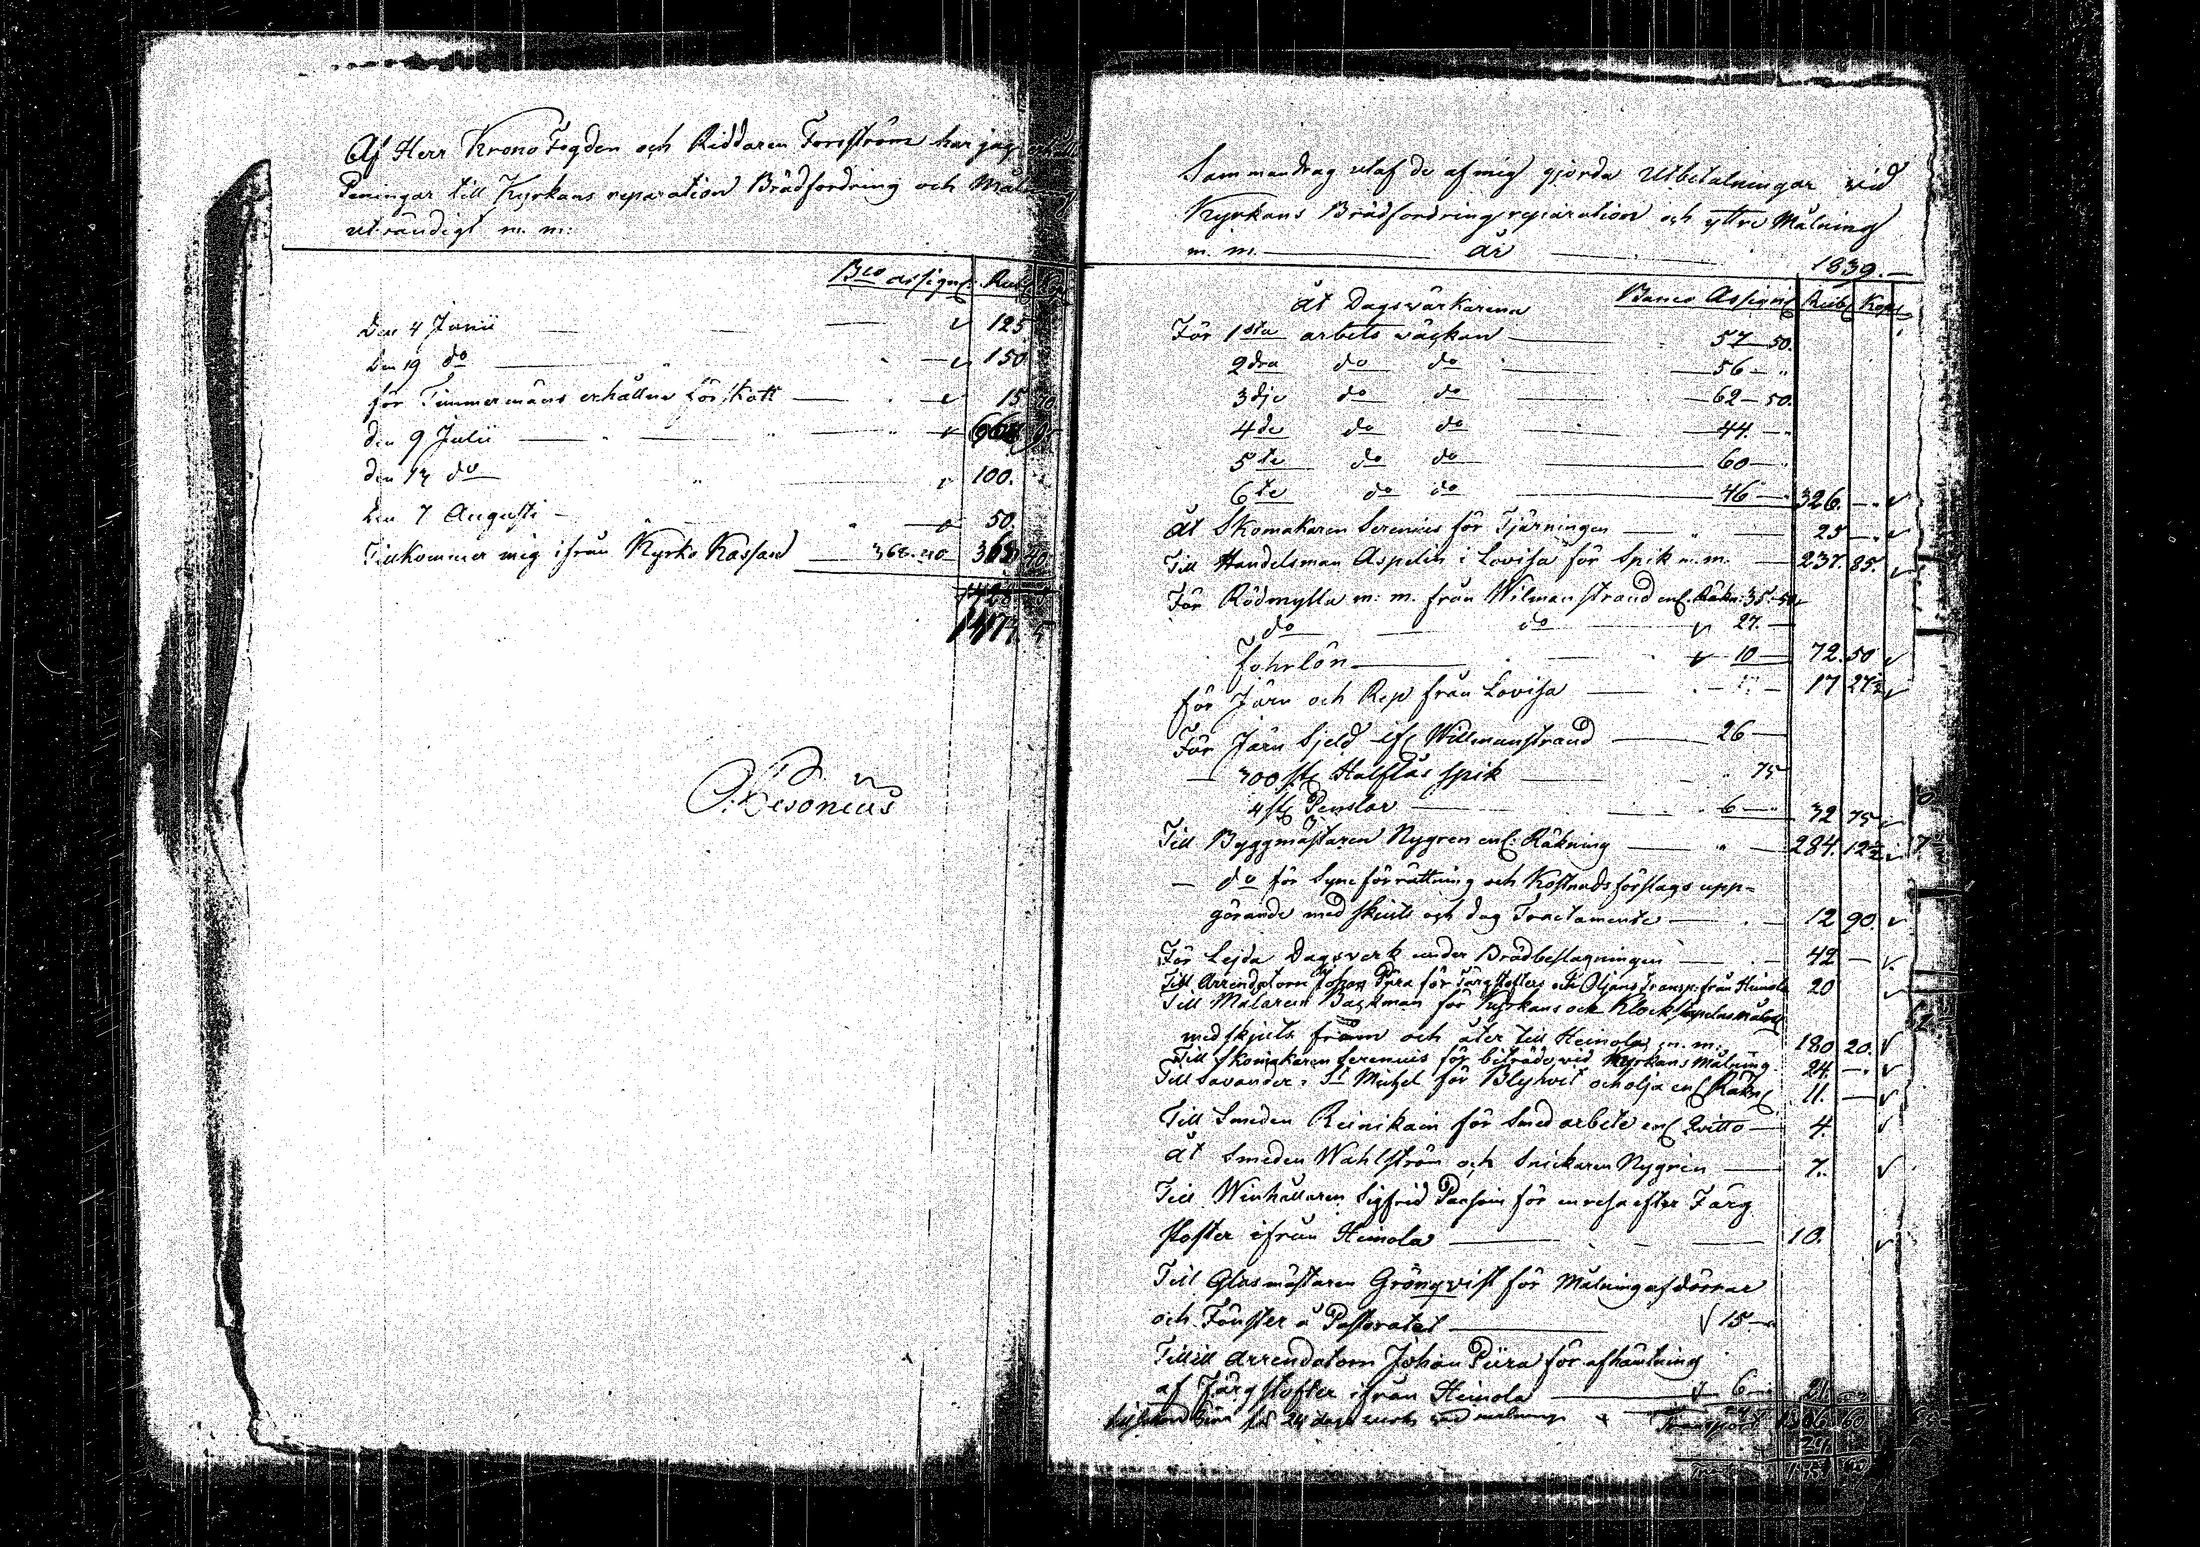 Af Herr Krono Fogden och Riddaren Forsström har jag
Peningar till Kyrkans reparation Brädfordring och
utvändigt m. m:
Bco assign: Rub Kop
Den 4 Junii 125
Den 19 do 150
för Timmermäns erhållne 15
den 9 Julii
den 17 do 100.
den 7 Augusti 50.
Tillkommer mig ifrån Kyrko Kassan 368.40 368. 40
1477. 5
Sammandrag utaf de af mig gjorda Utbetalningar vid
Kyrkans Brädfordring reparation och yttre Målning
m. m. år 1839.
Åt Dagsvärkarena Banco Assign: Rub Kop
För 1sta arbets wäckan 57 50.
2dra do do 56
3dje do do 62 50.
4de do do 44.
5te do do 60
6te do do 46 326.
Åt Skomakaren Serenius för Tjärningen 25
Till Handelsman Aspelin i Lovisa för Spik m.m. 237. 85.
För Rödmylla m: m. från Wilmanstrand enl. Räkn: 35. 50
do do 27.
Fohrlön 10 72. 50
för Järn och Rep från Lovisa 17 27½
För Järn Sjeld if. Willmanstrand 26
300 st Halflås spik 75
4 st Penslar 6 32 75
Till Byggmästaren Nygren enl: Räkning 284. 12½
do för Syneförrättning och Kostnadsförslags upp=
görande med skjuts och dag Tractamente 12 90.
För Lejda Dagsverk under Brädbeslagningen 42
Till Arrendatorn Johan Piira för Färg stofters och Oljans Transp: från Heinola 20
Till Målaren Backman för Kyrkans och Klockstapelns målning
med skjuts fram och åter till Heinola m. m. 180 20.
Till Skomakaren Serenius för biträde vid Kyrkans Målning 24.
Till Savander i St Michel för Blyhvit och olja enl Räkn: 11.
Till Smeden Reinikain för Smed arbete enl Qvitto 4.
Åt Smeden Wahlström och Snickaren Nygrén 7.
Till Sigfrid för en resa efter Färg
stofter ifrån Heinola 10.
Till Glasmästaren Grönqvist för Målning af dörrar
och Fönster å Pastoratet 15.
Tillill Arrendatorn Johan Piira för afhämtning
af Färgstofter ifrån Heinola 6 21
för 24 dags verk vid målning
Transport